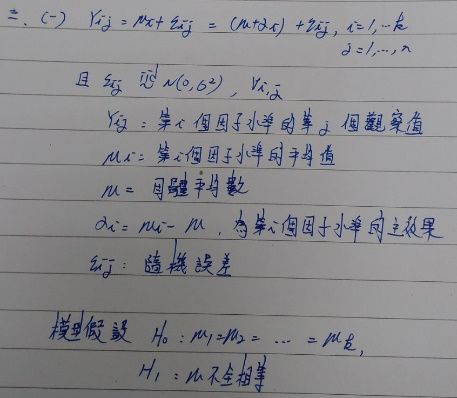 二、(一) Yij = μi + εij = (μ+αi) + εij, i=1,…k
j=1,…,n
且 εij iid~ N(0,σ²), ∀i,j
Yij:第i個因子水準的第j個觀察值
μi=第i個因子水準的平均值
μ= 母體平均數
αi=μi-μ,為第i個因子水準的主效果
εij:隨機誤差
模型假設 H0:μ1=μ2= … =μk,
H1:μ不全相等